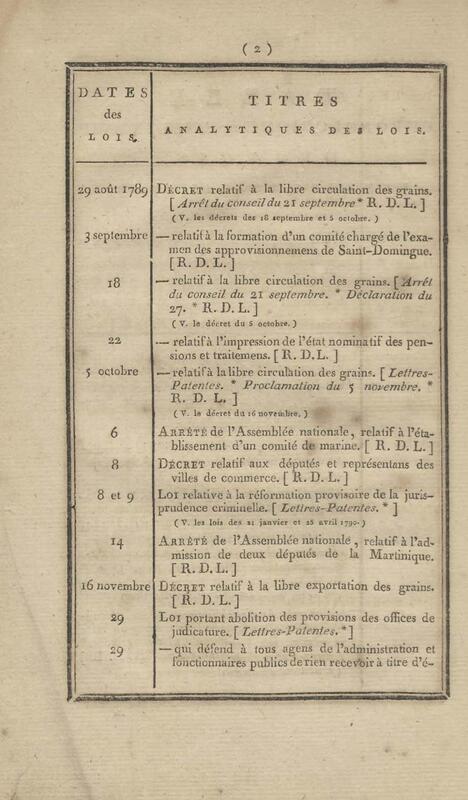 ( 2 )
DATES
des
LOIS.
TITRES
ANALYTIQUES DES LOIS.
29 août 1789 DÉCRET relatif à la libre circulation des grains.
[ Arrêt du conseil du 21 septembre * R. D. L. ]
( V. les décrets des 18 septembre et 5 octobre. )
3 septembre — relatif à la formation d'un comité chargé de l'exa-
men des approvisionnemens de Saint-Domingue.
[ R. D. L. ]
18 — relatif à la libre circulation des grains. [ Arrêt
du conseil du 21 septembre. * Déclaration du
27. * R. D. L. ]
( V. le décret du 5 octobre. )
22 — relatif à l'impression de l'état nominatif des pen-
sions et traitemens. [ R. D. L. ]
5 octobre — relatif à la libre circulation des grains. [ Lettres-
Patentes. * Proclamation du 5 novembre. *
R. D. L. ]
( V. le décret du 16 novembre. )
6 ARRÊTÉ de l'Assemblée nationale, relatif à l'éta-
blissement d'un comité de marine. [ R. D. L. ]
8 DÉCRET relatif aux députés et représentans des
villes de commerce. [ R. D. L. ]
8 et 9 LOI relative à la réformation provisoire de la juris-
prudence criminelle. [ Lettres-Patentes. * ]
( V. les lois des 21 janvier et 25 avril 1790. )
14 ARRÊTÉ de l'Assemblée nationale, relatif à l'ad-
mission de deux députés de la Martinique.
[ R. D. L. ]
16 novembre DÉCRET relatif à la libre exportation des grains.
[ R. D. L. ]
29 LOI portant abolition des provisions des offices de
judicature. [ Lettres-Patentes. * ]
29 — qui défend à tous agens de l'administration et
fonctionnaires publics de rien recevoir à titre d'é-